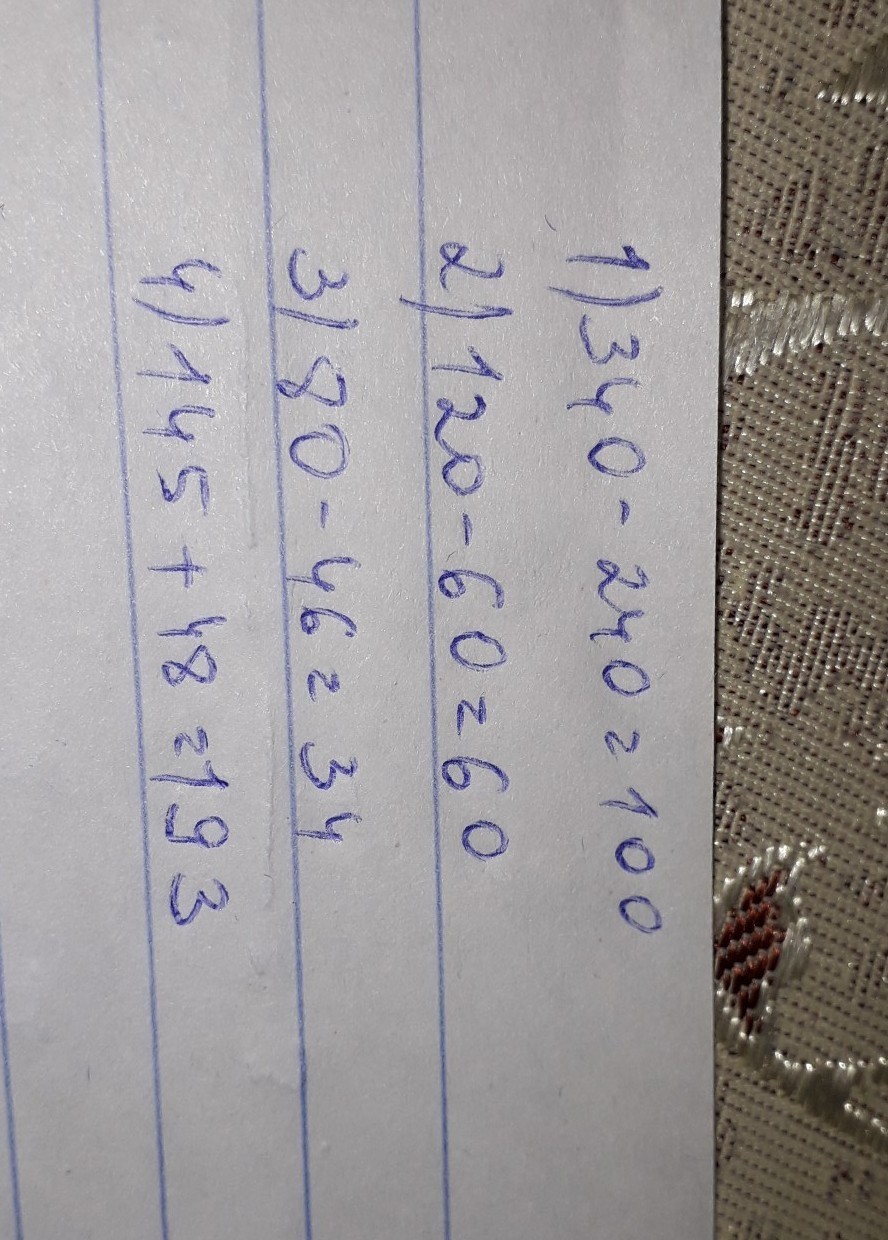 1) 340 - 240 = 100
2) 120 - 60 = 60
3) 80 - 46 = 34
4) 145 + 48 = 193